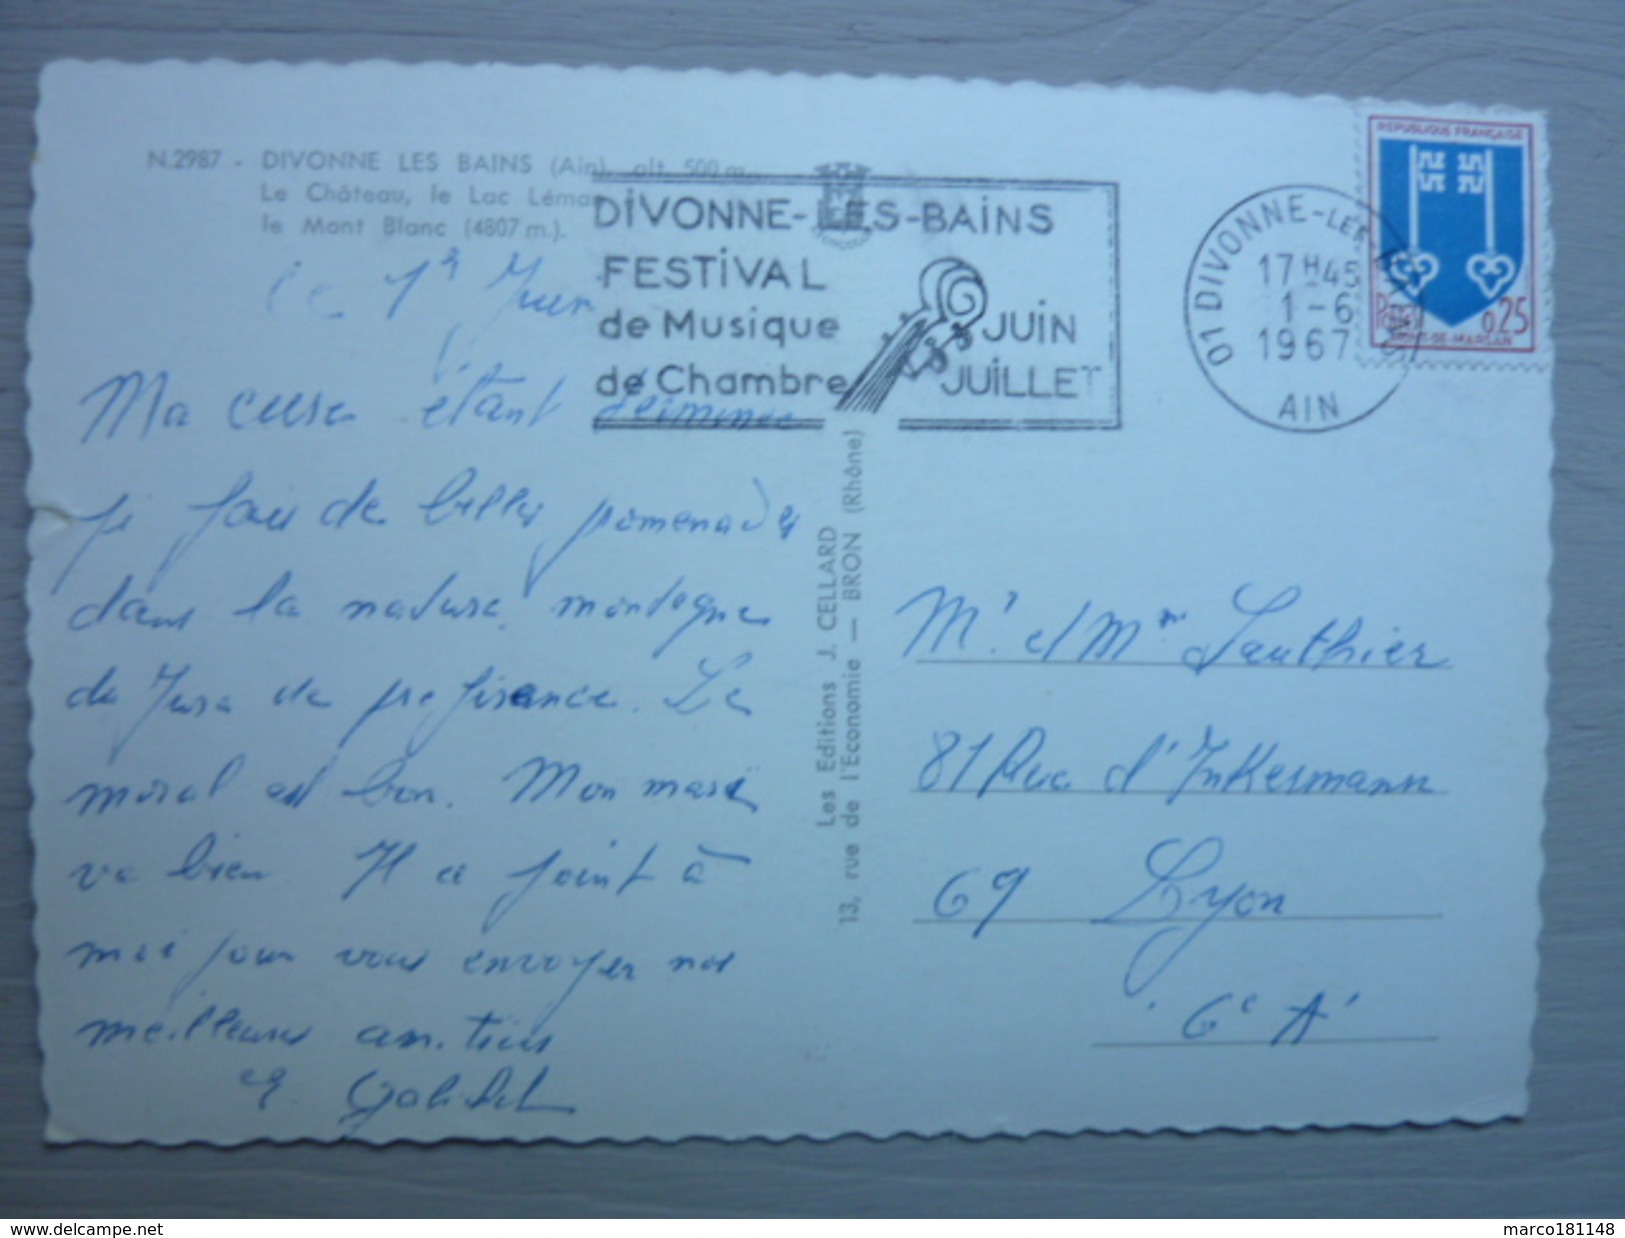 N.2987 - DIVONNE LES BAINS (Ain), alt. 500 m.,
Le Château, le Lac Léman
le Mont Blanc (4807 m.).
le 1r Juin
Ma cure étant terminée
je fais de belles promenades
dans la nature, montagne
du Jura de préférence. Le
moral est bon. Mon mari
va bien Il ce joint à
moi pour vous envoyer nos
meilleures amitiés
DIVONNE-LES-BAINS
FESTIVAL
de Musique
de Chambre
JUIN
JUILLET
01 DIVONNE-LES-BAINS
17H45
1-6
1967
AIN
REPUBLIQUE FRANÇAISE
Postes
0,25
MONT-DE-MARSAN
Les Editions J. CELLARD
13, rue de l'Economie — BRON (Rhône)
Mr et Mme Gauthier
81 Rue d'Inkermann
69 Lyon
6e A'
www.delcampe.net
marco181148